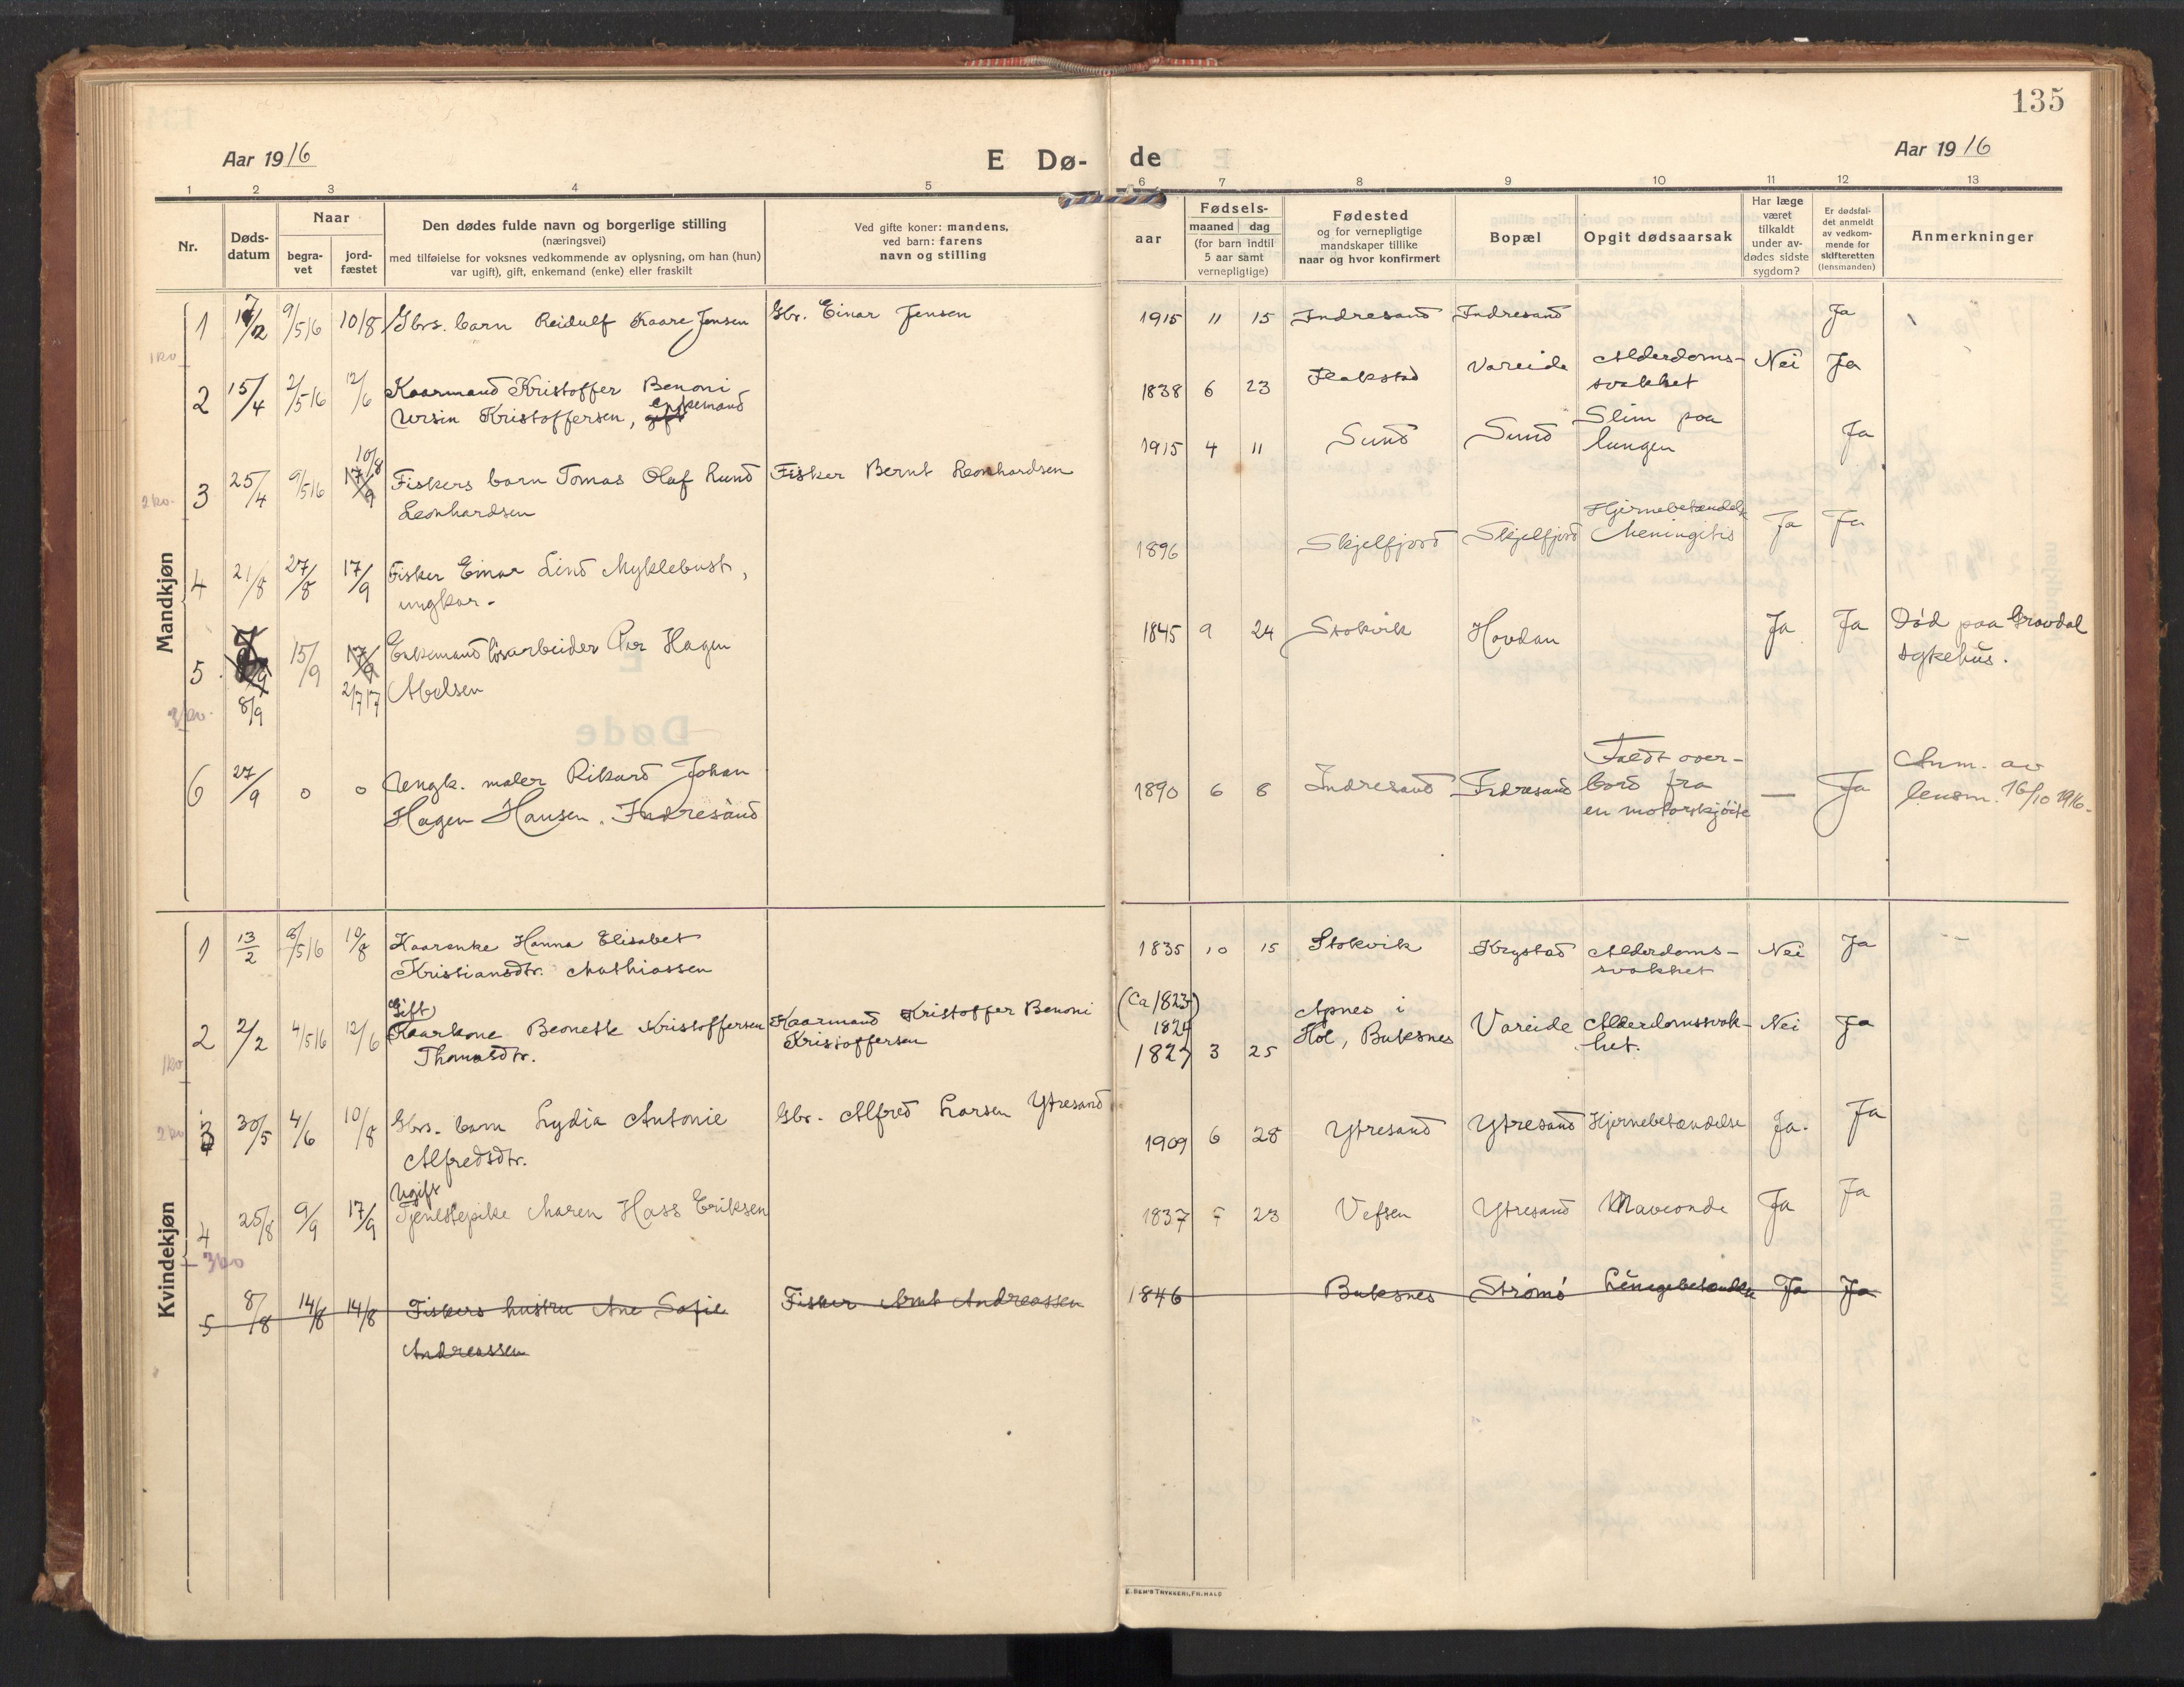 135
Aar 1916
E Dø- de
Aar 1916
1 2 3 4 5 6 7 8 9 10 11 12 13
Nr.
Døds-
datum
Naar
begra-
vet
jord-
fæstet
Den dødes fulde navn og borgerlige stilling
(næringsvei)
med tilføielse for voksnes vedkommende av oplysning, om han (hun)
var ugift), gift, enkemand (enke) eller fraskilt
Ved gifte koner: mandens,
ved barn: farens
navn og stilling
aar
Fødsels-
maaned dag
(for barn indtil
5 aar samt
vernepligtige)
Fødested
og for vernepligtige
mandskaper tillike
naar og hvor konfirmert
Bopæl
Opgit dødsaarsak
Har læge
været
tilkaldt
under av-
dødes sidste
sygdom?
Er dødsfal-
det anmeldt
av vedkom-
mende for
skifteretten
(lensmanden)
Anmerkninger
Mandkjøn
1 9/516 10/8 Gbrs. barn Reidulf Kaare Jensen Gbr. Einar Jensen 1915 11 15 Indresand Indresand Ja
2 15/4 2/516 12/6 Kaarmand Kristoffer Benoni
Ursin Kristoffersen, enkemand gift
1838 6 23 Flakstad Vareide Alderdoms-
svakhet Nei Ja
3 25/4 9/516 10/8 17/9 Fiskers barn Tomas Olaf Lund
Leonhardsen
Fisker Bernt Leonhardsen 1915 4 11 Sund Sund Slim paa
lungen Ja
4 21/8 27/8 17/9 Fisker Einar Lind Myklebust,
ungkar.
1896 Skjelfjord Skjelfjord Hjernebetændelse
Meningitis Ja Ja
5 8/9 15/9 17/9 2/717 Enkemand løsarbeider Per Hagen
Abelsen
1845 9 24 Stokvik Hovdan Ja Ja Død paa Gravdal
sykehus.
6 27/9 o o Ungk. maler Rikard Johan
Hagen Hansen. Indresand
1890 6 8 Indresand Indresand Faldt over-
bord fra
en motorskjöite — Ja Anm. av
lensm. 16/10 1916.
Kvindekjøn
1 13/2 8/516 10/8 Kaarenke Hanna Elisabet
Kristiansdtr. Mathiassen
1835 10 15 Stokvik Krystad Alderdoms-
svakhet Nei Ja
2 2/2 4/516 12/6 Gift
Kaarkone Beonette Kristoffersen
Thomasdtr.
Kaarmand Kristoffer Benoni
Kristoffersen
(Ca 1823)
1824
1827 3 25 Apnes i
Hol, Buksnes Vareide Alderdomssvak-
het. Nei Ja
3 30/5 4/6 10/8 Gbrs. barn Lydia Antonie
Alfredsdtr.
Gbr. Alfred Larsen Ytresand 1909 6 28 Ytresand Ytresand Hjernebetændelse Ja. Ja
4 25/8 9/9 17/9 Ugift
Tjenestepike Maren Hass Eriksen
1837 23 Vefsen Ytresand Maveonde Ja Ja
5 8/8 14/8 14/8 Fiskers hustru Ane Sofie
Andreassen
Fisker Arnt Andreassen 1846 Buksnes Strömö Lungebetændelse Ja Ja
E. SEM'S TRYKKERI, FR.HALD